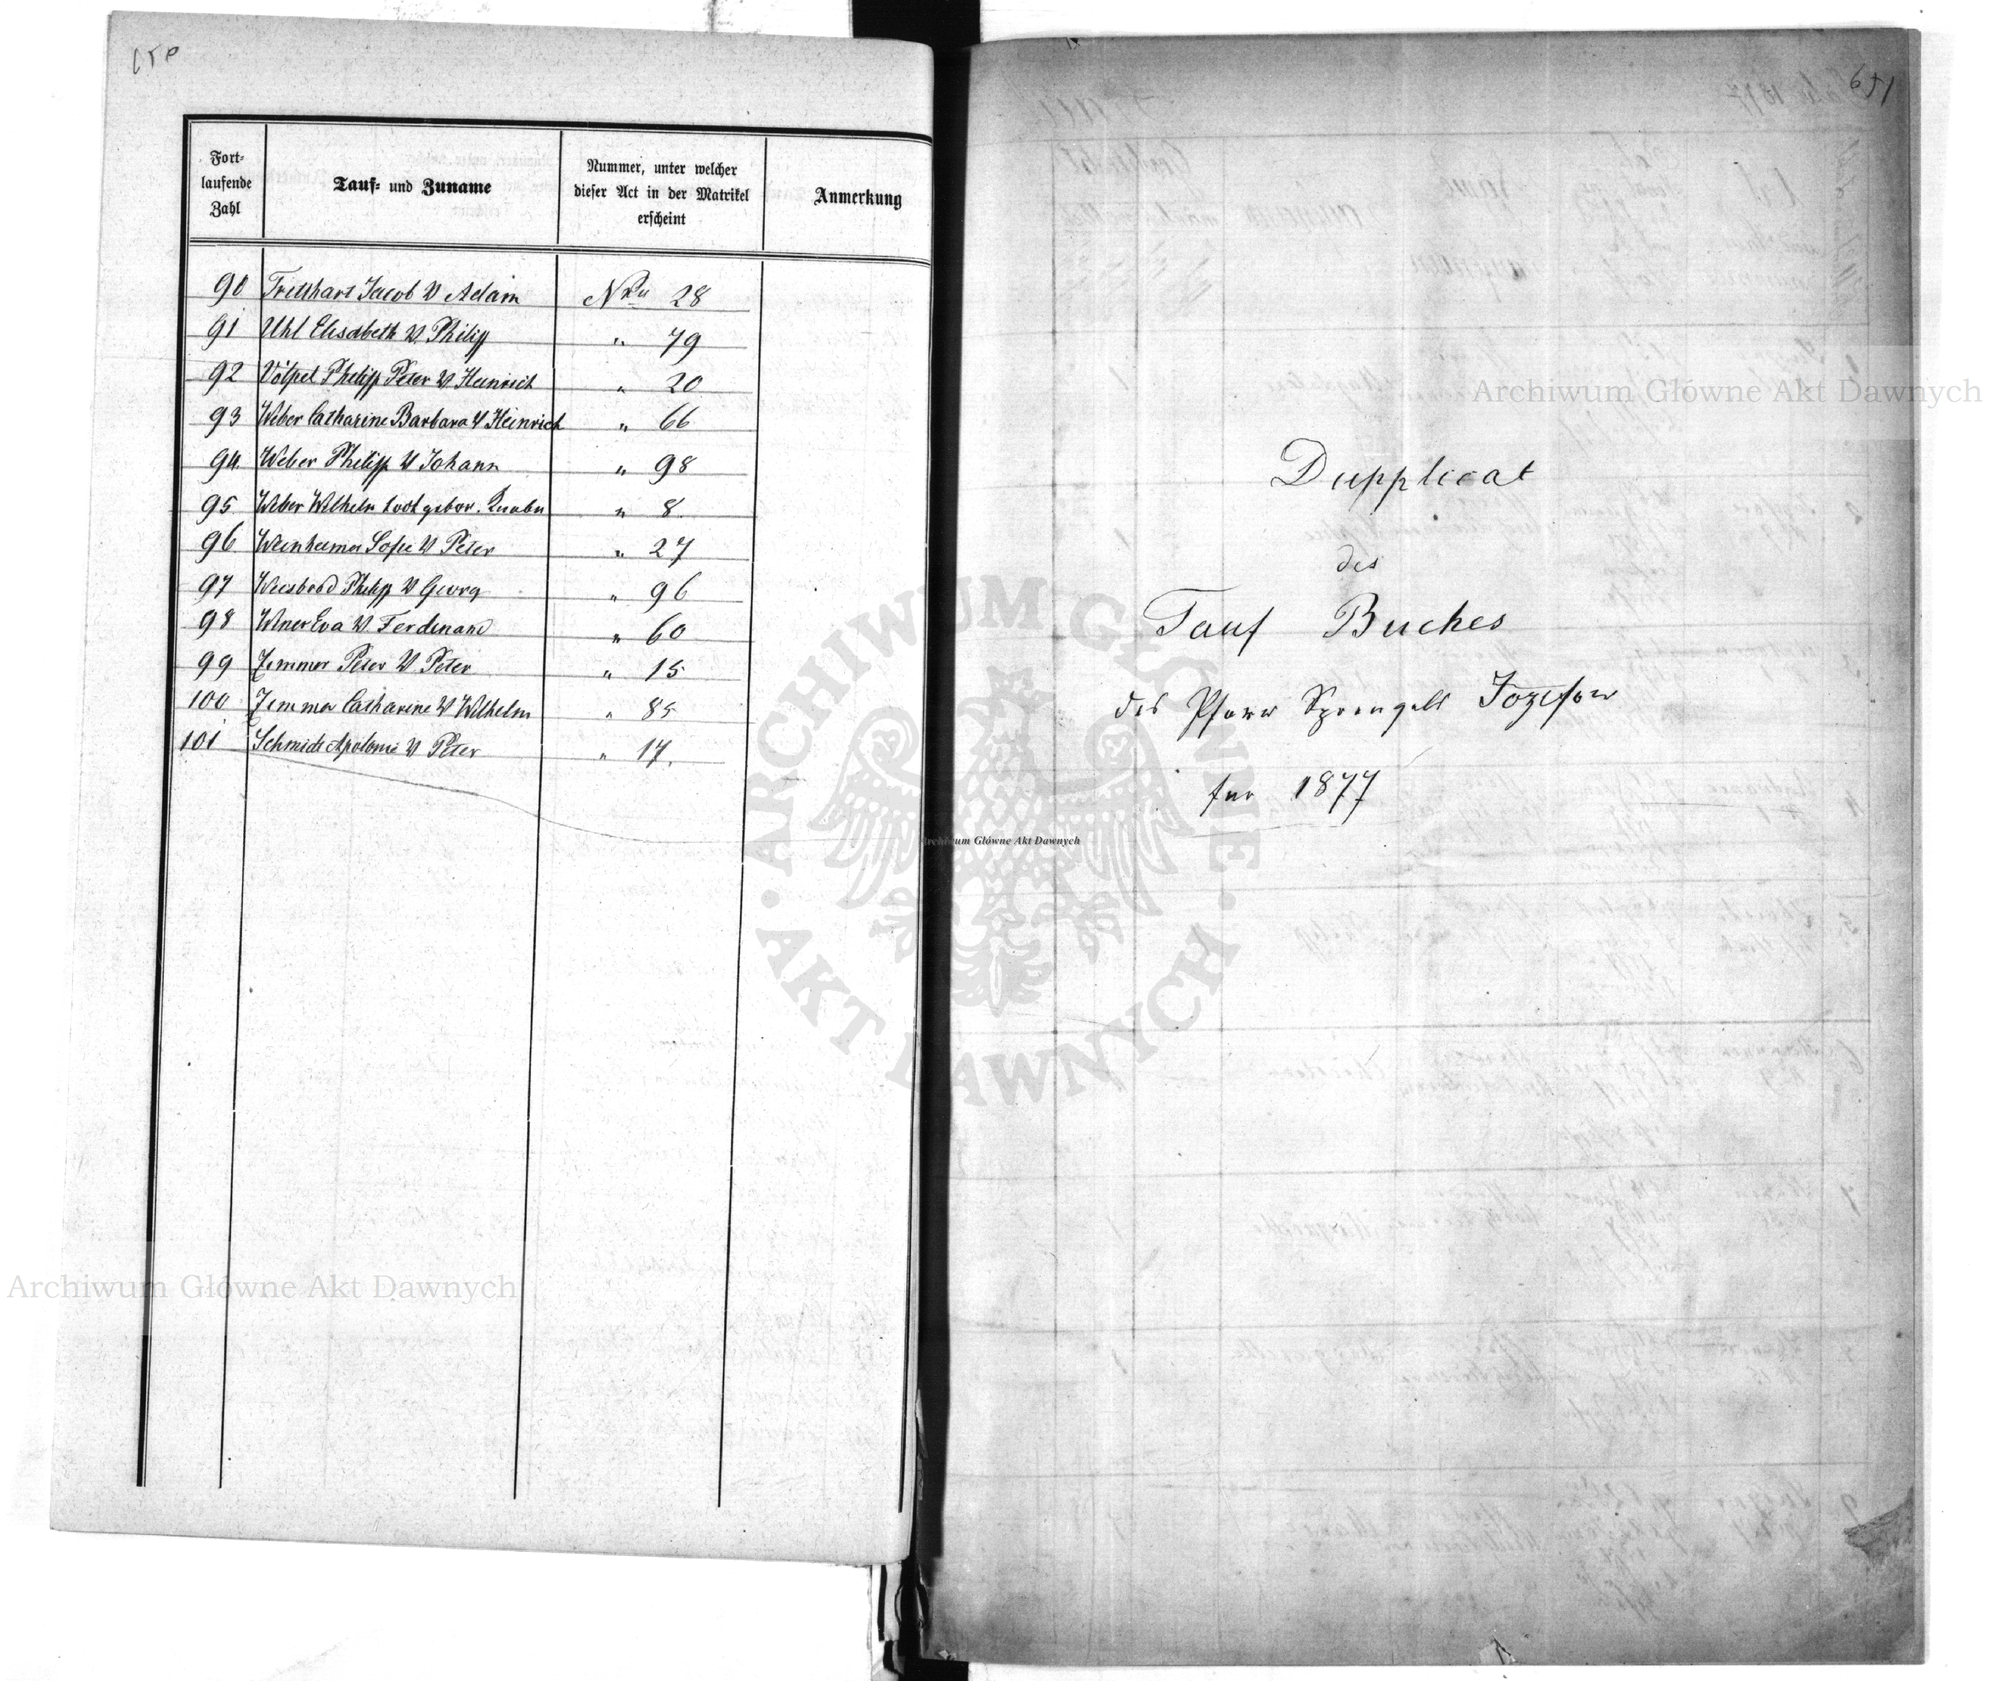 650
Fort-
laufende
Zahl
Tauf- und Zuname
Nummer, unter welcher
dieser Act in der Matrikel
erscheint
Anmerkung
90 Jacob v Adam Nro 28
91 Uhl Elisabeth v Philipp " 79
92 Völpel Philipp Peter v Heinrich " 20
93 Weber Catharine Barbara v Heinrich " 66
94. Weber Philipp v Johann " 98
95 Weber Wilhelm todtgebor. Knabe " 8.
96 Weinheimer Sofie v Peter " 27
97 Philipp v Georg " 96
98 Eva v Ferdinand " 60
99 Zimmer Peter v Peter " 15
100 Zimmer Catharine v Wilhelm " 85
101 Schmidt Apoloni v Peter " 17.
651
Dupplicat
des
Tauf Buches
des Pfarr Sprengels Jozefow
fur 1877
Archiwum Główne Akt Dawnych
Archiwum Główne Akt Dawnych
Archiwum Główne Akt Dawnych
ARCHIWUM GŁÓWNE AKT DAWNYCH